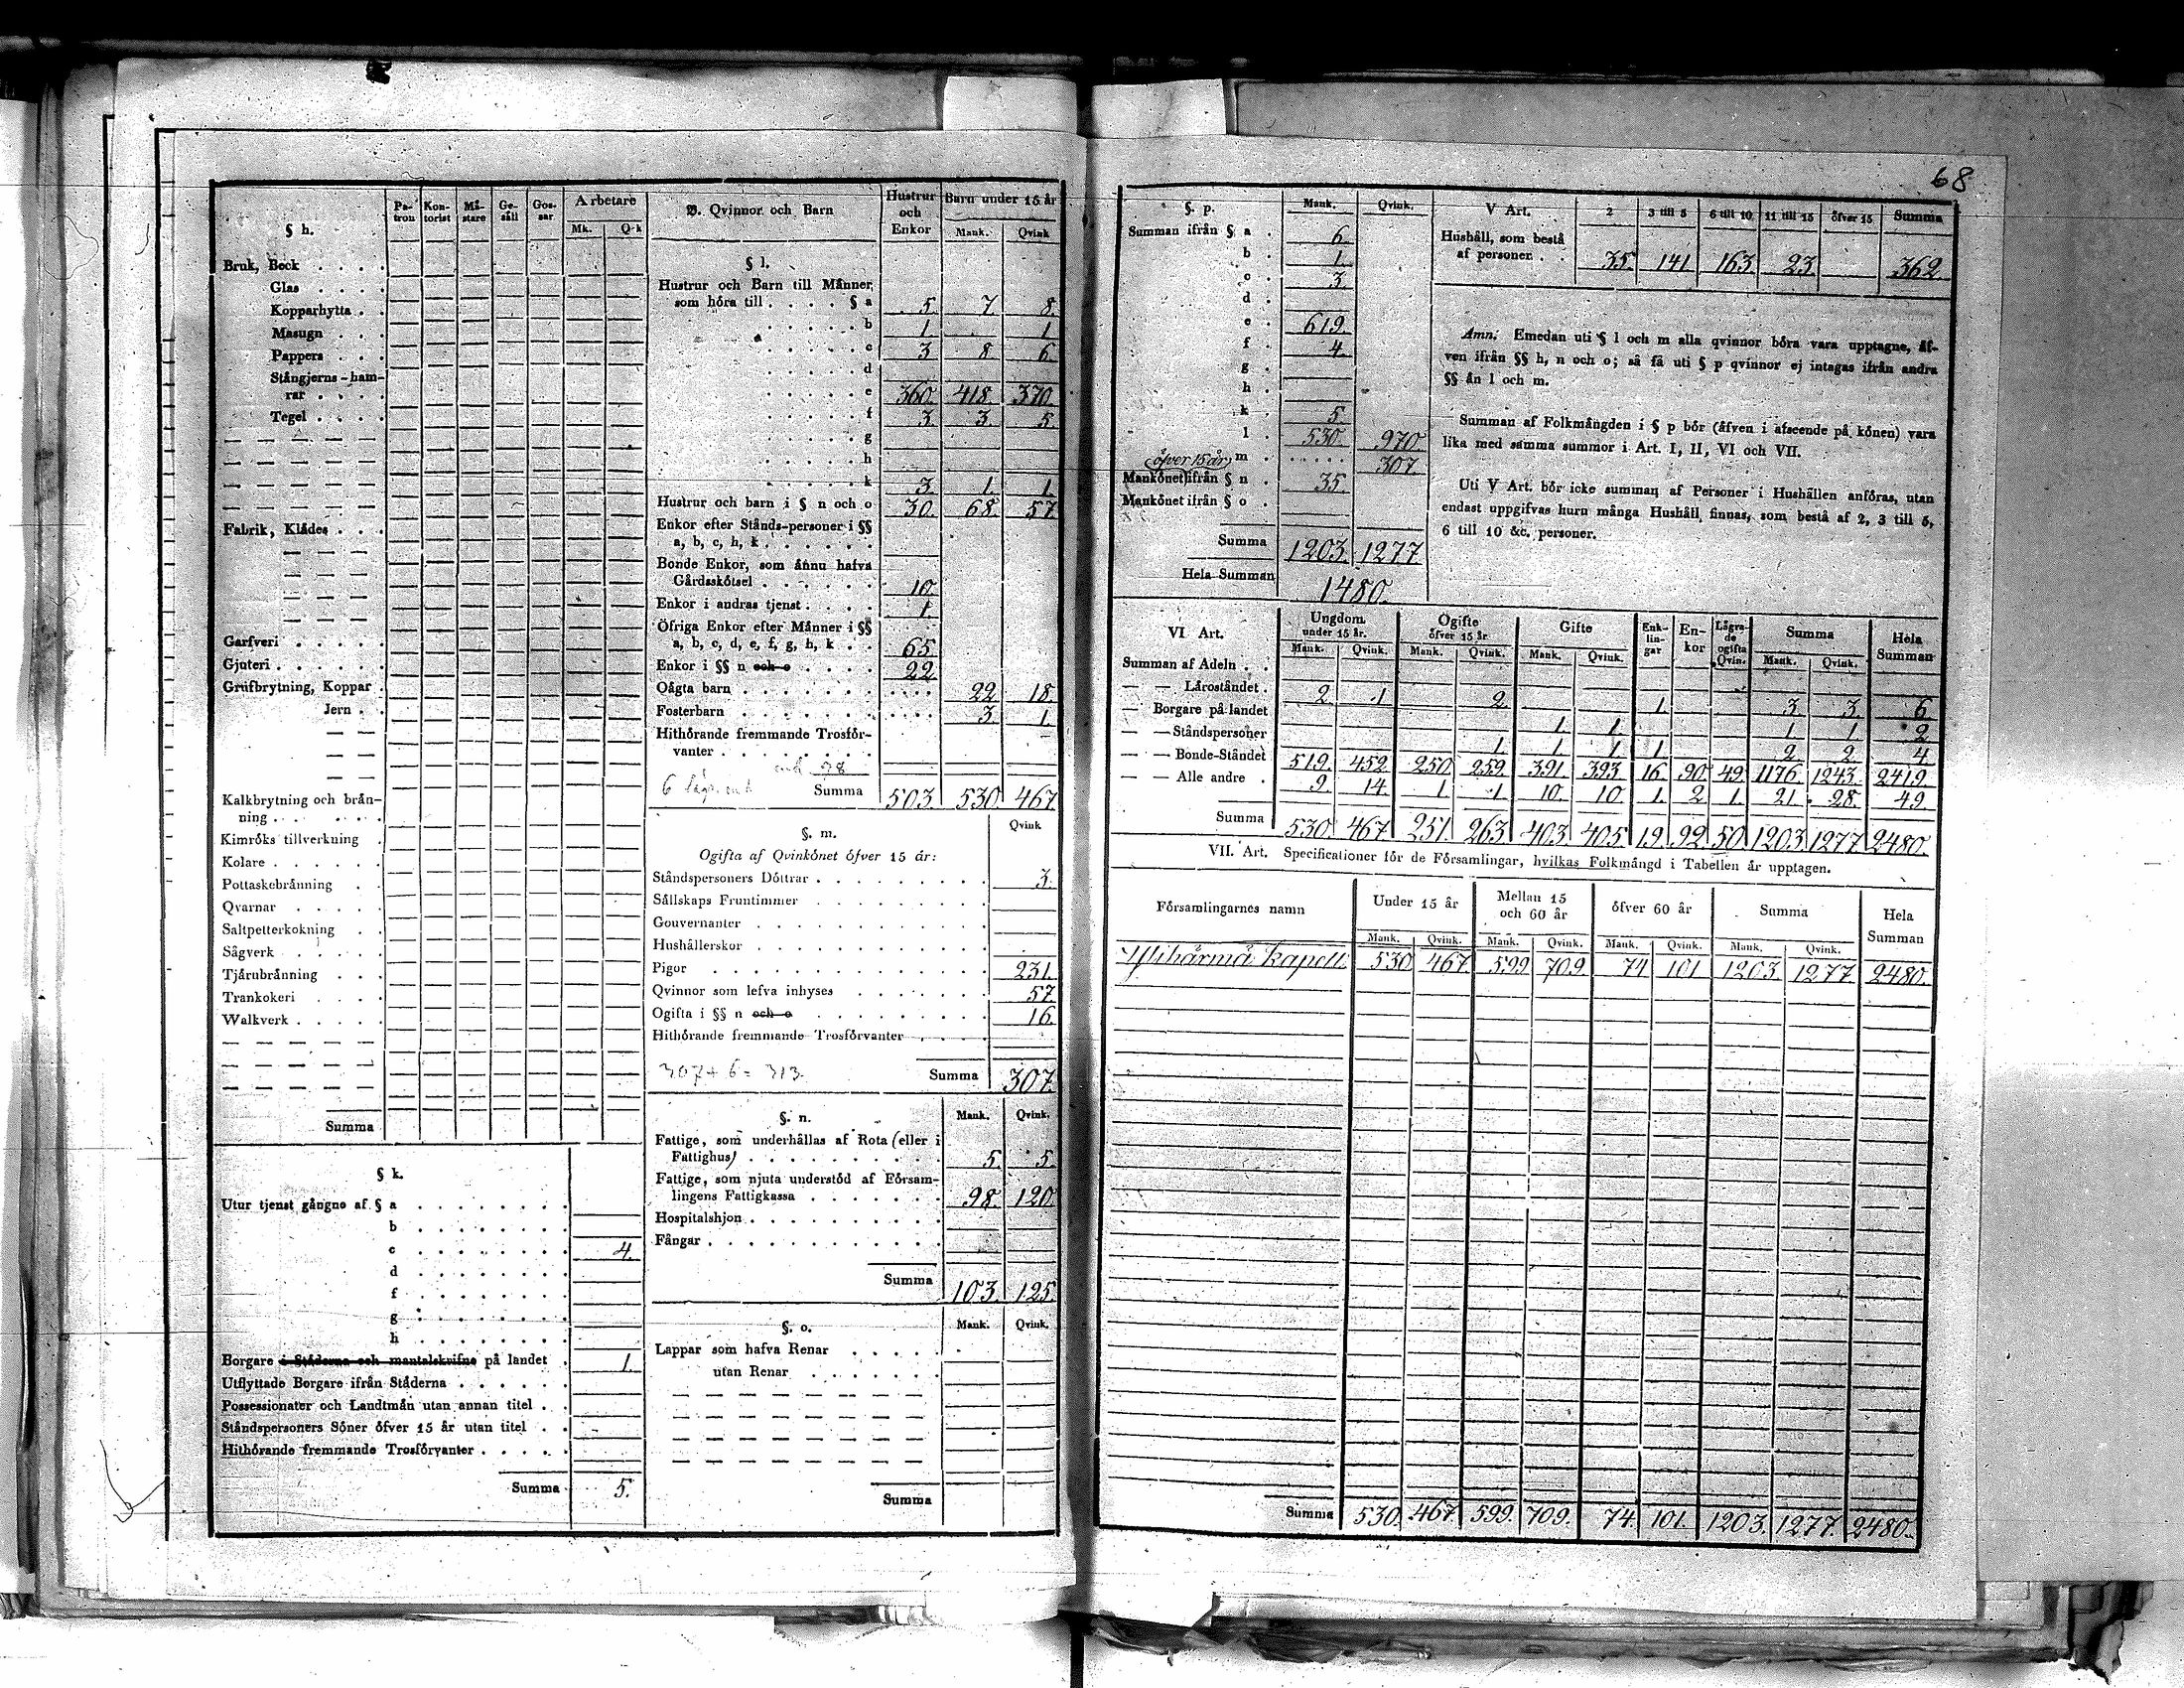 68
§ h.
Pa- tron Kon- torist Må- stare Ge- säll Gos- sar Arbetare
Mk. Qk
Bruk, Beck . . . .
Glas . . . .
Kopparhytta . .
Masugn . . .
Pappers . . .
Stångjerns-ham-
rar . . . .
Tegel . . . .
Fabrik, Klådes . . .
Garfveri . . . . .
Gjuteri . . . . .
Grufbrytning, Koppar .
Jern . .
Kalkbrytning och brån-
ning . . . . .
Kimróks tillverkning .
Kolare . . . . . .
Pottaskebrånning . .
Qvarnar . . . . .
Saltpetterkokning . .
Sågverk . . . . .
Tjårubrånning . . .
Trankokeri . . . .
Walkverk . . . . .
Summa
§ k.
Utur tjenst gångne af § a . . . . . . .
b . . . . . . .
c . . . . . . . 4.
d . . . . . . .
f . . . . . . .
g . . . . . . .
h . . . . . . .
Borgare i Ståderna och mantalskrifne på landet . 1.
Utflyttade Borgare ifrån Ståderna . . . . . .
Possessionater och Landtmån utan annan titel . .
Ståndspersoners Sóner ófver 15 år utan titel . .
Hithórande fremmande Trosfórvanter . . . . .
Summa 5.
B. Qvinnor och Barn Hustrur och Enkor Barn under 15 år
Mank. Qvink
§ l.
Hustrur och Barn till Månner,
som hóra till . . . . § a 5. 7 8.
b 1. 1.
c 3 8 6.
d
e 360. 418. 370.
f 3. 3. 5.
g
h
k 3. 1. 1.
Hustrur och barn i § n och o 30. 68. 57
Enkor efter Stånds-personer i §§
a, b, c, h, k . . . . . .
Bonde Enkor, som ånnu hafva
Gårdsskótsel . . . . . . 10.
Enkor i andras tjenst . . . . 1.
Öfriga Enkor efter Månner i §§
a, b, c, d, e, f, g, h, k . . 65.
Enkor i §§ n och o . . . . 22.
Oågta barn . . . . . . . 22. 18.
Fosterbarn . . . . . . . 3. 1.
Hithórande fremmande Trosfór-
vanter . . . . . . . .
Summa 503. 530. 467.
§. m.
Qvink
Ogifta af Qvinkónet ófver 15 år:
Ståndspersoners Dóttrar . . . . . . . . . 3.
Sållskaps Fruntimmer . . . . . . . . .
Gouvernanter . . . . . . . . . . . .
Hushållerskor . . . . . . . . . . . .
Pigor . . . . . . . . . . . . . . 231.
Qvinnor som lefva inhyses . . . . . . . 57.
Ogifta i §§ n och o . . . . . . . . . 16.
Hithórande fremmande Trosfórvanter . . . .
307 + 6 = 313.
Summa 307.
§. n.
Mank. Qvink.
Fattige, som underhållas af Rota (eller i
Fattighus) . . . . . . . . . . 5. 5.
Fattige, som njuta understód af Fórsam-
lingens Fattigkassa . . . . . . . 98. 120.
Hospitalshjon . . . . . . . . . .
Fångar . . . . . . . . . . . . .
Summa 103. 125.
§. o.
Mank. Qvink.
Lappar som hafva Renar . . . . .
utan Renar . . . . . . .
Summa
§. p.
Mank. Qvink.
Summan ifrån § a . 6.
b . 1.
c . 3.
d .
e . 619.
f . 4.
g .
h .
k . 5.
l . 530. 970.
m . . . . . . 307.
öfver 15 år
Mankónet ifrån § n . 35.
Mankónet ifrån § o .
Summa 1203. 1277
Hela Summan 1480.
V Art. 2 3 till 5 6 till 10 11 till 15 ófver 15 Summa
Hushåll, som bestå
af personer . . 35. 141 163. 23. 362.
Anm. Emedan uti § l och m alla qvinnor bóra vara upptagne, åf-
ven ifrån §§ h, n och o; så få uti § p qvinnor ej intagas ifrån andra
§§ ån l och m.
Summan af Folkmångden i § p bór (åfven i afseende på kónen) vara
lika med samma summor i Art. I, II, VI och VII.
Uti V Art. bór icke summan af Personer i Hushållen anfóras, utan
endast uppgifvas huru många Hushåll finnas, som bestå af 2, 3 till 5,
6 till 10 &c. personer.
VI Art. Ungdom under 15 år. Ogifte ófver 15 år Gifte Enk- lin- gar En- kor Lågra- de ogifta Qvin. Summa Hela Summan
Mank. Qvink. Mank. Qvink. Mank. Qvink. Mank. Qvink.
Summan af Adeln . .
— — Lårostandet . 2. 1 2. 1. 3. 3. 6.
— Borgare på landet 1. 1. 1. 1. 2
— — Ståndspersoner 1. 1. 1. 1. 2. 2. 4
— — Bonde-Ståndet 519. 452. 250. 259. 391. 393. 16. 90. 49. 1176. 1243. 2419.
— — Alle andre . 9. 14. 1. 1. 10. 10. 1. 2 1. 21. 28. 49.
Summa 530. 467. 251. 263. 403. 405. 19. 92. 50. 1203. 1277. 2480.
VII. Art. Specificationer för de Fórsamlingar, hvilkas Folkmångd i Tabellen år upptagen.
Fórsamlingarnes namn Under 15 år Mellan 15 och 60 år ófver 60 år Summa Hela Summan
Mank. Qvink. Mank. Qvink. Mank. Qvink. Mank. Qvink.
Ylihärmä Kapell. 530. 467. 599. 709. 74 101 1203. 1277. 2480.
Summa 530. 467. 599. 709. 74. 101. 1203. 1277. 2480.